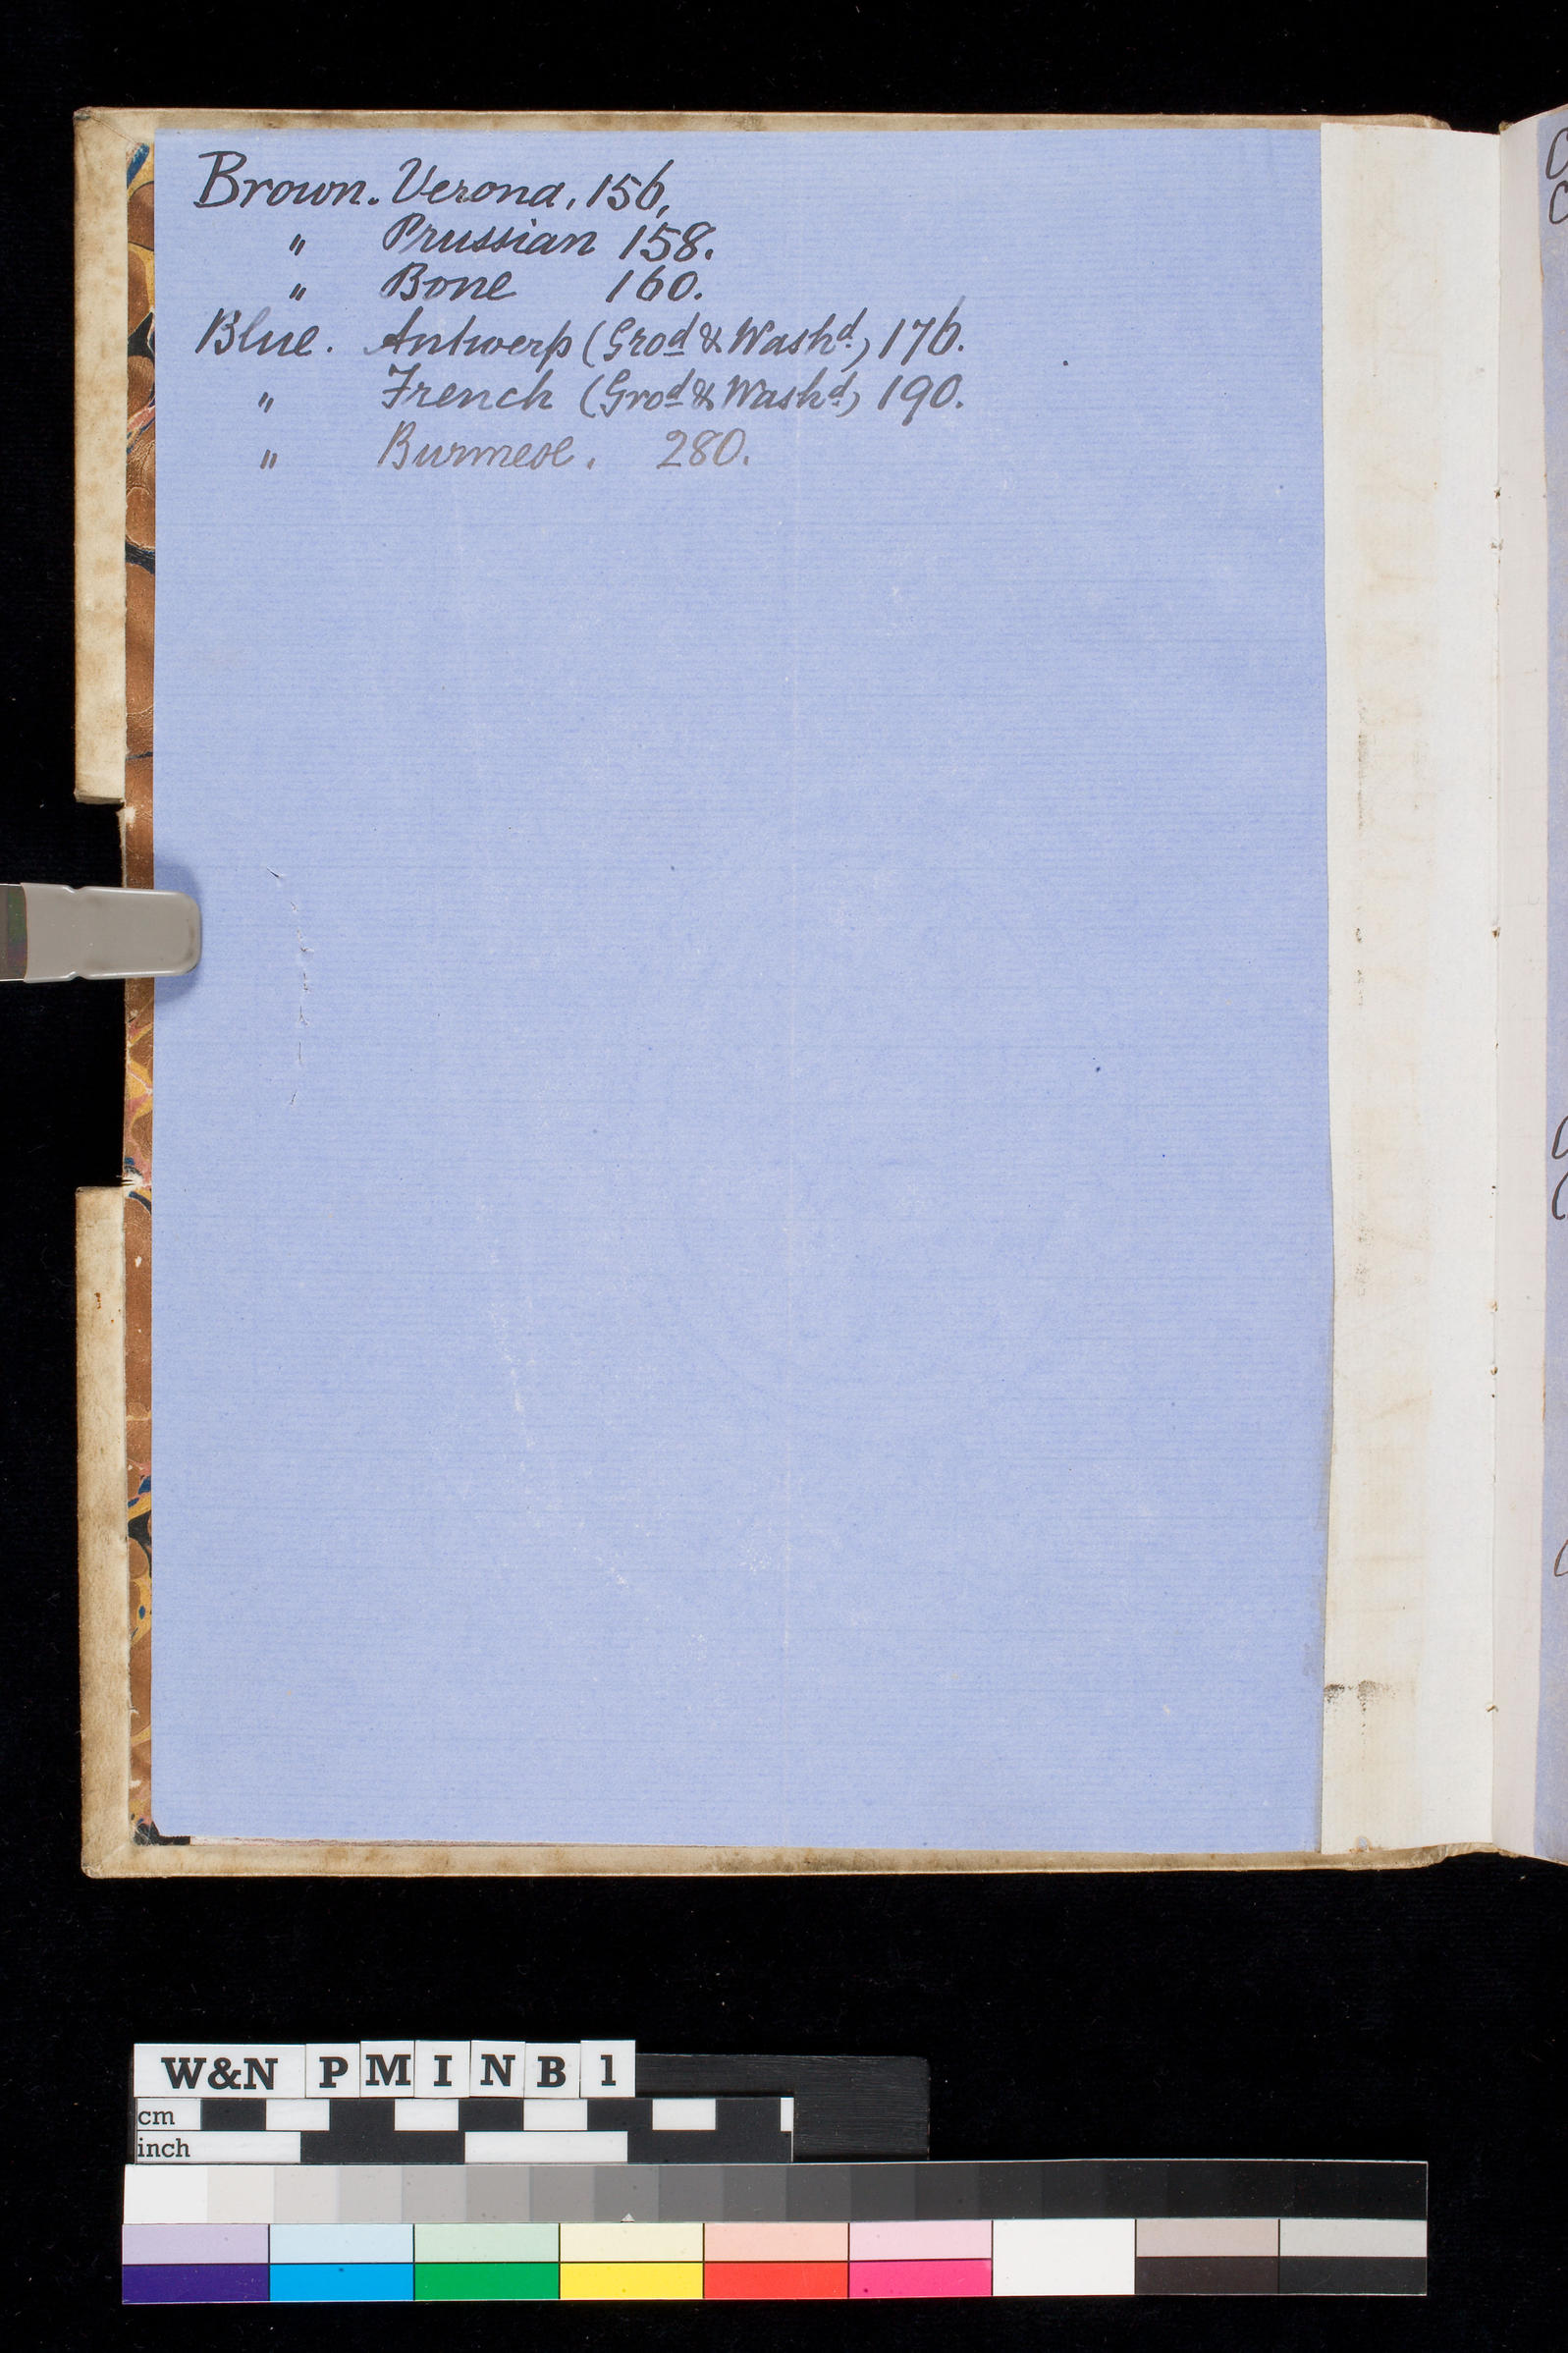 Brown. Verona, 156,
" Prussian 158.
" Bone 160.
Blue. Antwerp (Gro^d & Wash^d) 176.
" French (Gro^d & Wash^d) 190.
" Burmese. 280.
W&N PMINB1
cm
inch